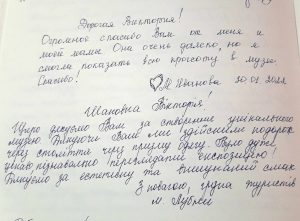 Дорогая Виктория!
Огромное спасибо Вам от меня и
моей мамы. Она очень далеко, но я
смогла показать всю красоту в музее.
Спасибо!
М. Иванова 30.01.
Шановна Вікторія!
Щиро дякуємо Вам за створення унікального
музею. Завдяки Вам ми здійснили подорож
через століття через призму одягу. Було дуже
цікаво і пізнавально переглядати експозицію!
Дякуємо за естетику та вишуканий смак
З повагою, група туристів
м.